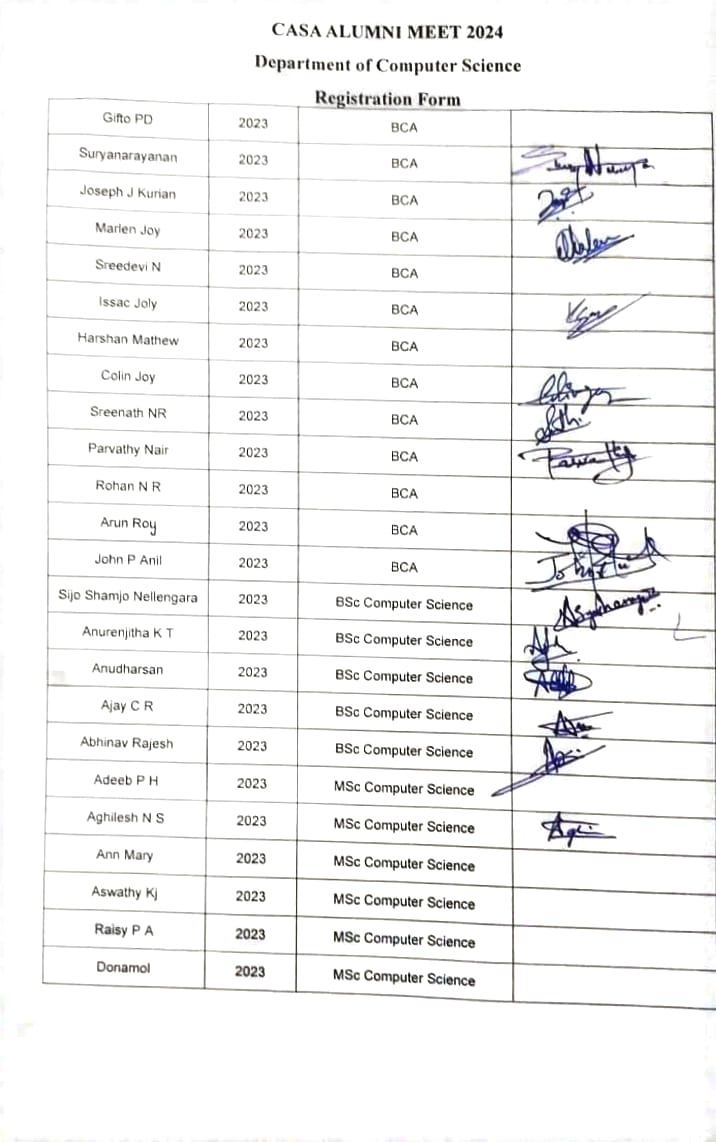 CASA ALUMNI MEET 2024
Department of Computer Science
Registration Form
Gifto PD 2023 BCA
Suryanarayanan 2023 BCA
Joseph J Kurian 2023 BCA
Marlen Joy 2023 BCA
Sreedevi N 2023 BCA
Issac Joly 2023 BCA
Harshan Mathew 2023 BCA
Colin Joy 2023 BCA
Sreenath NR 2023 BCA
Parvathy Nair 2023 BCA
Rohan N R 2023 BCA
Arun Roy 2023 BCA
John P Anil 2023 BCA
Sijo Shamjo Nellengara 2023 BSc Computer Science
Anurenjitha K T 2023 BSc Computer Science
Anudharsan 2023 BSc Computer Science
Ajay C R 2023 BSc Computer Science
Abhinav Rajesh 2023 BSc Computer Science
Adeeb P H 2023 MSc Computer Science
Aghilesh N S 2023 MSc Computer Science
Ann Mary 2023 MSc Computer Science
Aswathy Kj 2023 MSc Computer Science
Raisy P A 2023 MSc Computer Science
Donamol 2023 MSc Computer Science